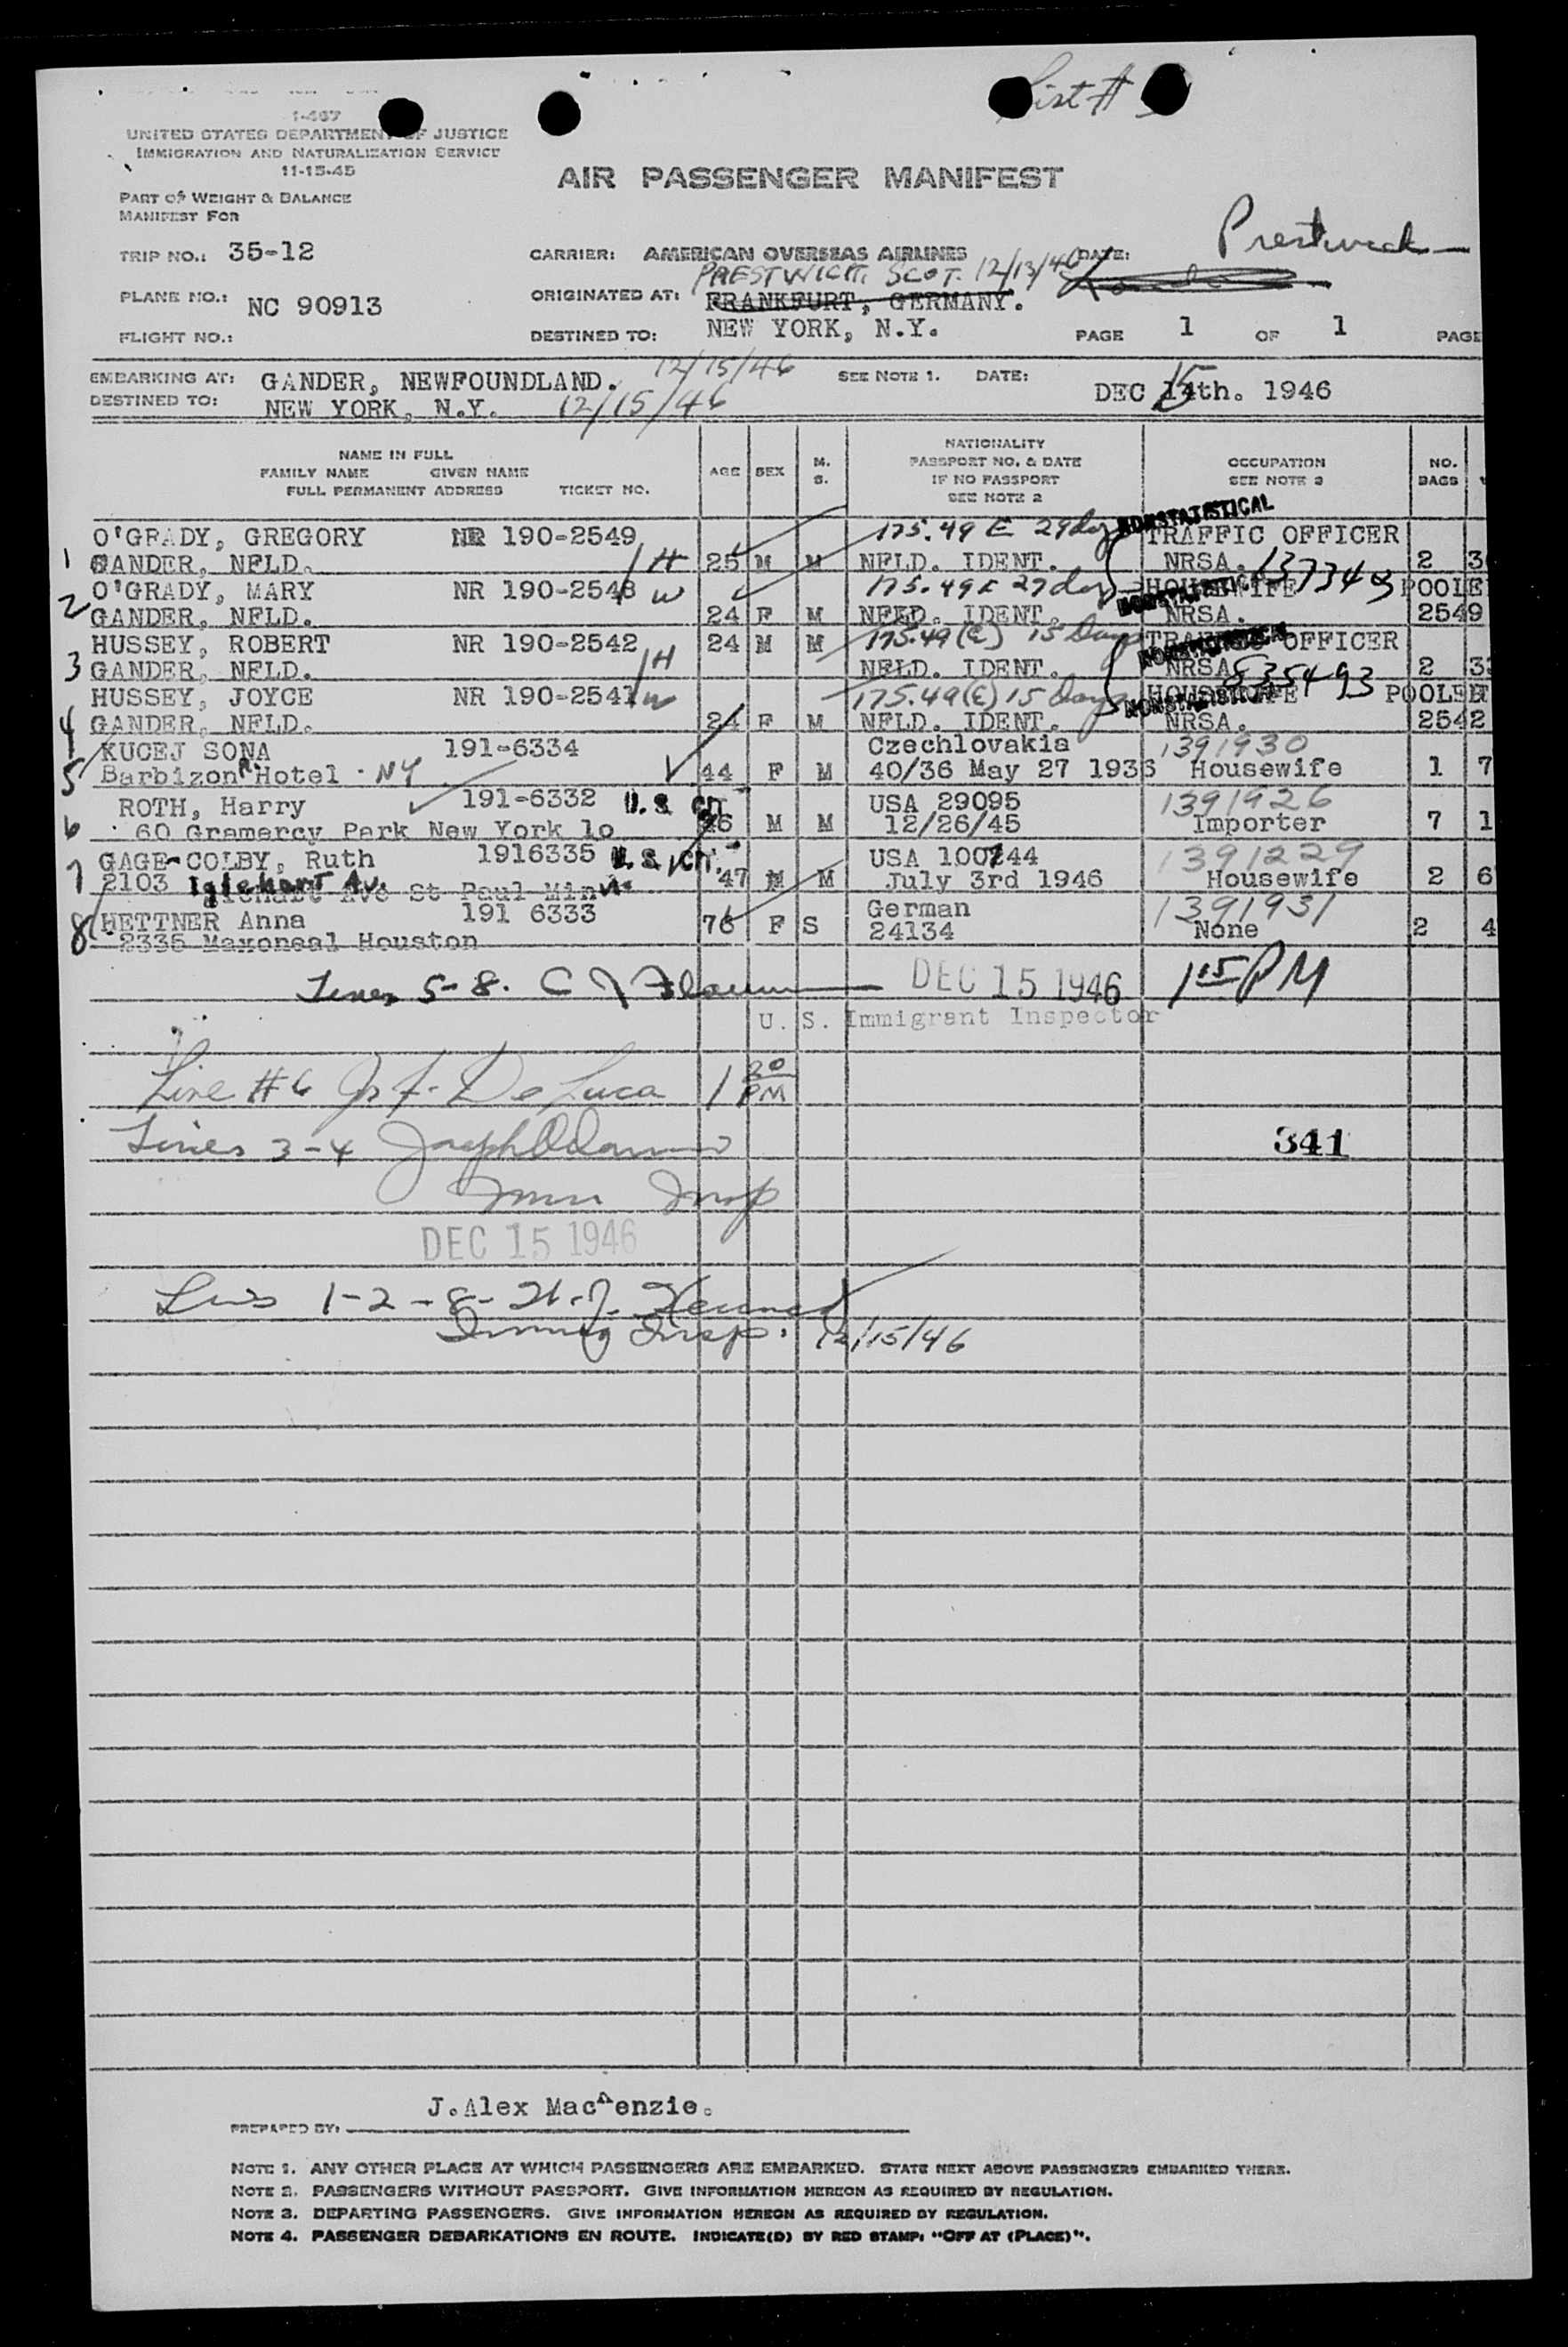 List #
1-467
UNITED STATES DEPARTMENT OF JUSTICE
IMMIGRATION AND NATURALIZATION SERVICE
11-15-45
AIR PASSENGER MANIFEST
PART OF WEIGHT & BALANCE
MANIFEST FOR
Prestwick
TRIP NO.: 35-12
CARRIER: AMERICAN OVERSEAS AIRLINES DATE:
PRESTWICK SCOT. 12/13/46
PLANE NO.: NC 90913
ORIGINATED AT: FRANKFURT, GERMANY.
FLIGHT NO.:
DESTINED TO: NEW YORK, N.Y.
PAGE 1 OF 1 PAGE
EMBARKING AT: GANDER, NEWFOUNDLAND. 12/15/46 SEE NOTE 1. DATE: DEC 15 14th. 1946
DESTINED TO: NEW YORK, N.Y. 12/15/46
NAME IN FULL
FAMILY NAME GIVEN NAME
FULL PERMANENT ADDRESS TICKET NO.
AGE SEX M. S.
NATIONALITY
PASSPORT NO. & DATE
IF NO PASSPORT
SEE NOTE 2
OCCUPATION
SEE NOTE 3
NO. BAGS
O'GRADY, GREGORY NR 190-2549 175.49 E 29 days NONSTATISTICAL TRAFFIC OFFICER
1 GANDER, NFLD. /H 25 M M NFLD. IDENT. NRSA. 2 3
O'GRADY, MARY NR 190-2548 W 175.49E 29 days HOUSEWIFE POOLE
2 GANDER, NFLD. 24 F M NFLD. IDENT. NONSTATISTICAL NRSA. 2549
HUSSEY, ROBERT NR 190-2542 24 M M 175.49(E) 15 Days TRAFFIC OFFICER
3 GANDER, NFLD. /H NFLD. IDENT. NONSTATISTICAL NRSA 5354493 2 3
HUSSEY, JOYCE NR 190-2541 W 175.49(E) 15 Days HOUSEWIFE POOLED
4 GANDER, NFLD. 24 F M NFLD. IDENT. NONSTATISTICAL NRSA. 2542
KUCEJ SONA 191-6334 Czechlovakia 1391930
5 Barbizon Hotel · NY 44 F M 40/36 May 27 1936 Housewife 1 7
ROTH, Harry 191-6332 U.S. CIT. USA 29095 1391926
6 60 Gramercy Park New York 10 M M 12/26/45 Importer 7 1
GAGE-COLBY, Ruth 1916335 U.S. CIT. USA 100744 1391229
7 2103 Iglehart Av. Iglehart Ave St Paul Minn 47 M M July 3rd 1946 Housewife 2 6
HETTNER Anna 191 6333 German 1391931
8 Houston 76 F S 24134 None 2 4
Lines 5-8. C J DEC 15 1946 1 15 PM
U. S. Immigrant Inspector
Line #6 De Luca 1 30 PM
Lines 3-4 Joseph
341
Imm Insp
DEC 15 1946
Lines 1-2-8-
Immig Insp. 12/15/46
J.Alex MacKenzie.
PREPARED BY:
NOTE 1. ANY OTHER PLACE AT WHICH PASSENGERS ARE EMBARKED. STATE NEXT ABOVE PASSENGERS EMBARKED THERE.
NOTE 2. PASSENGERS WITHOUT PASSPORT. GIVE INFORMATION HEREON AS REQUIRED BY REGULATION.
NOTE 3. DEPARTING PASSENGERS. GIVE INFORMATION HEREON AS REQUIRED BY REGULATION.
NOTE 4. PASSENGER DEBARKATIONS EN ROUTE. INDICATE(D) BY RED STAMP: "OFF AT (PLACE)".